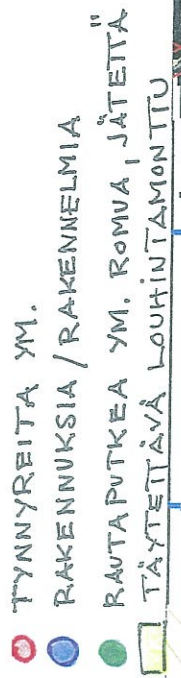 TYNNYREITA YM.
RAKENNUKSIA/RAKENNELMIA
RAUTAPUTKEA YM. ROMUA, JÄTEITÄ
TÄYTETTÄVÄ LOUHINTAMONTTU